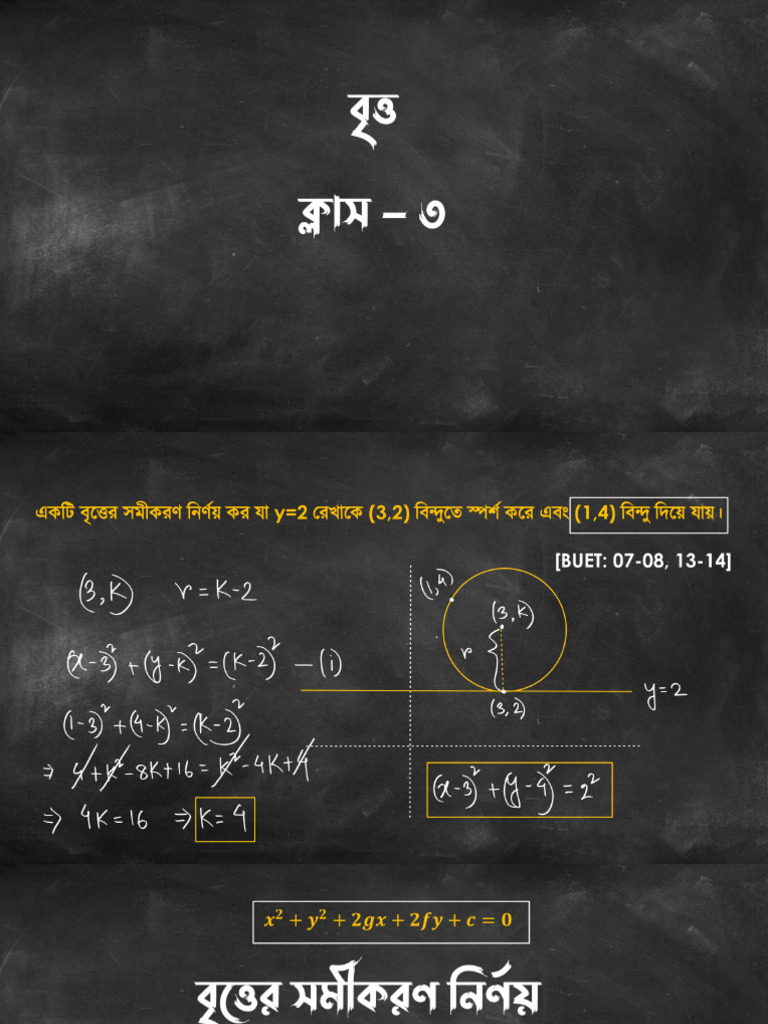 বৃত্ত
ক্লাস – ৩
একটি বৃত্তের সমীকরণ নির্ণয় কর যা y=2 রেখাকে (3,2) বিন্দুতে স্পর্শ করে এবং (1,4) বিন্দু দিয়ে যায়।
[BUET: 07-08, 13-14]
(3,K) r = K-2
(x-3)² + (y-K)² = (K-2)² — (i)
(1-3)² + (4-K)² = (K-2)²
⇒ 4 + K² - 8K + 16 = K² - 4K + 4
⇒ 4K = 16 ⇒ K = 4
(1,4)
(3,K)
r
y=2
(3,2)
(x-3)² + (y-4)² = 2²
x² + y² + 2gx + 2fy + c = 0
বৃত্তের সমীকরণ নির্ণয়